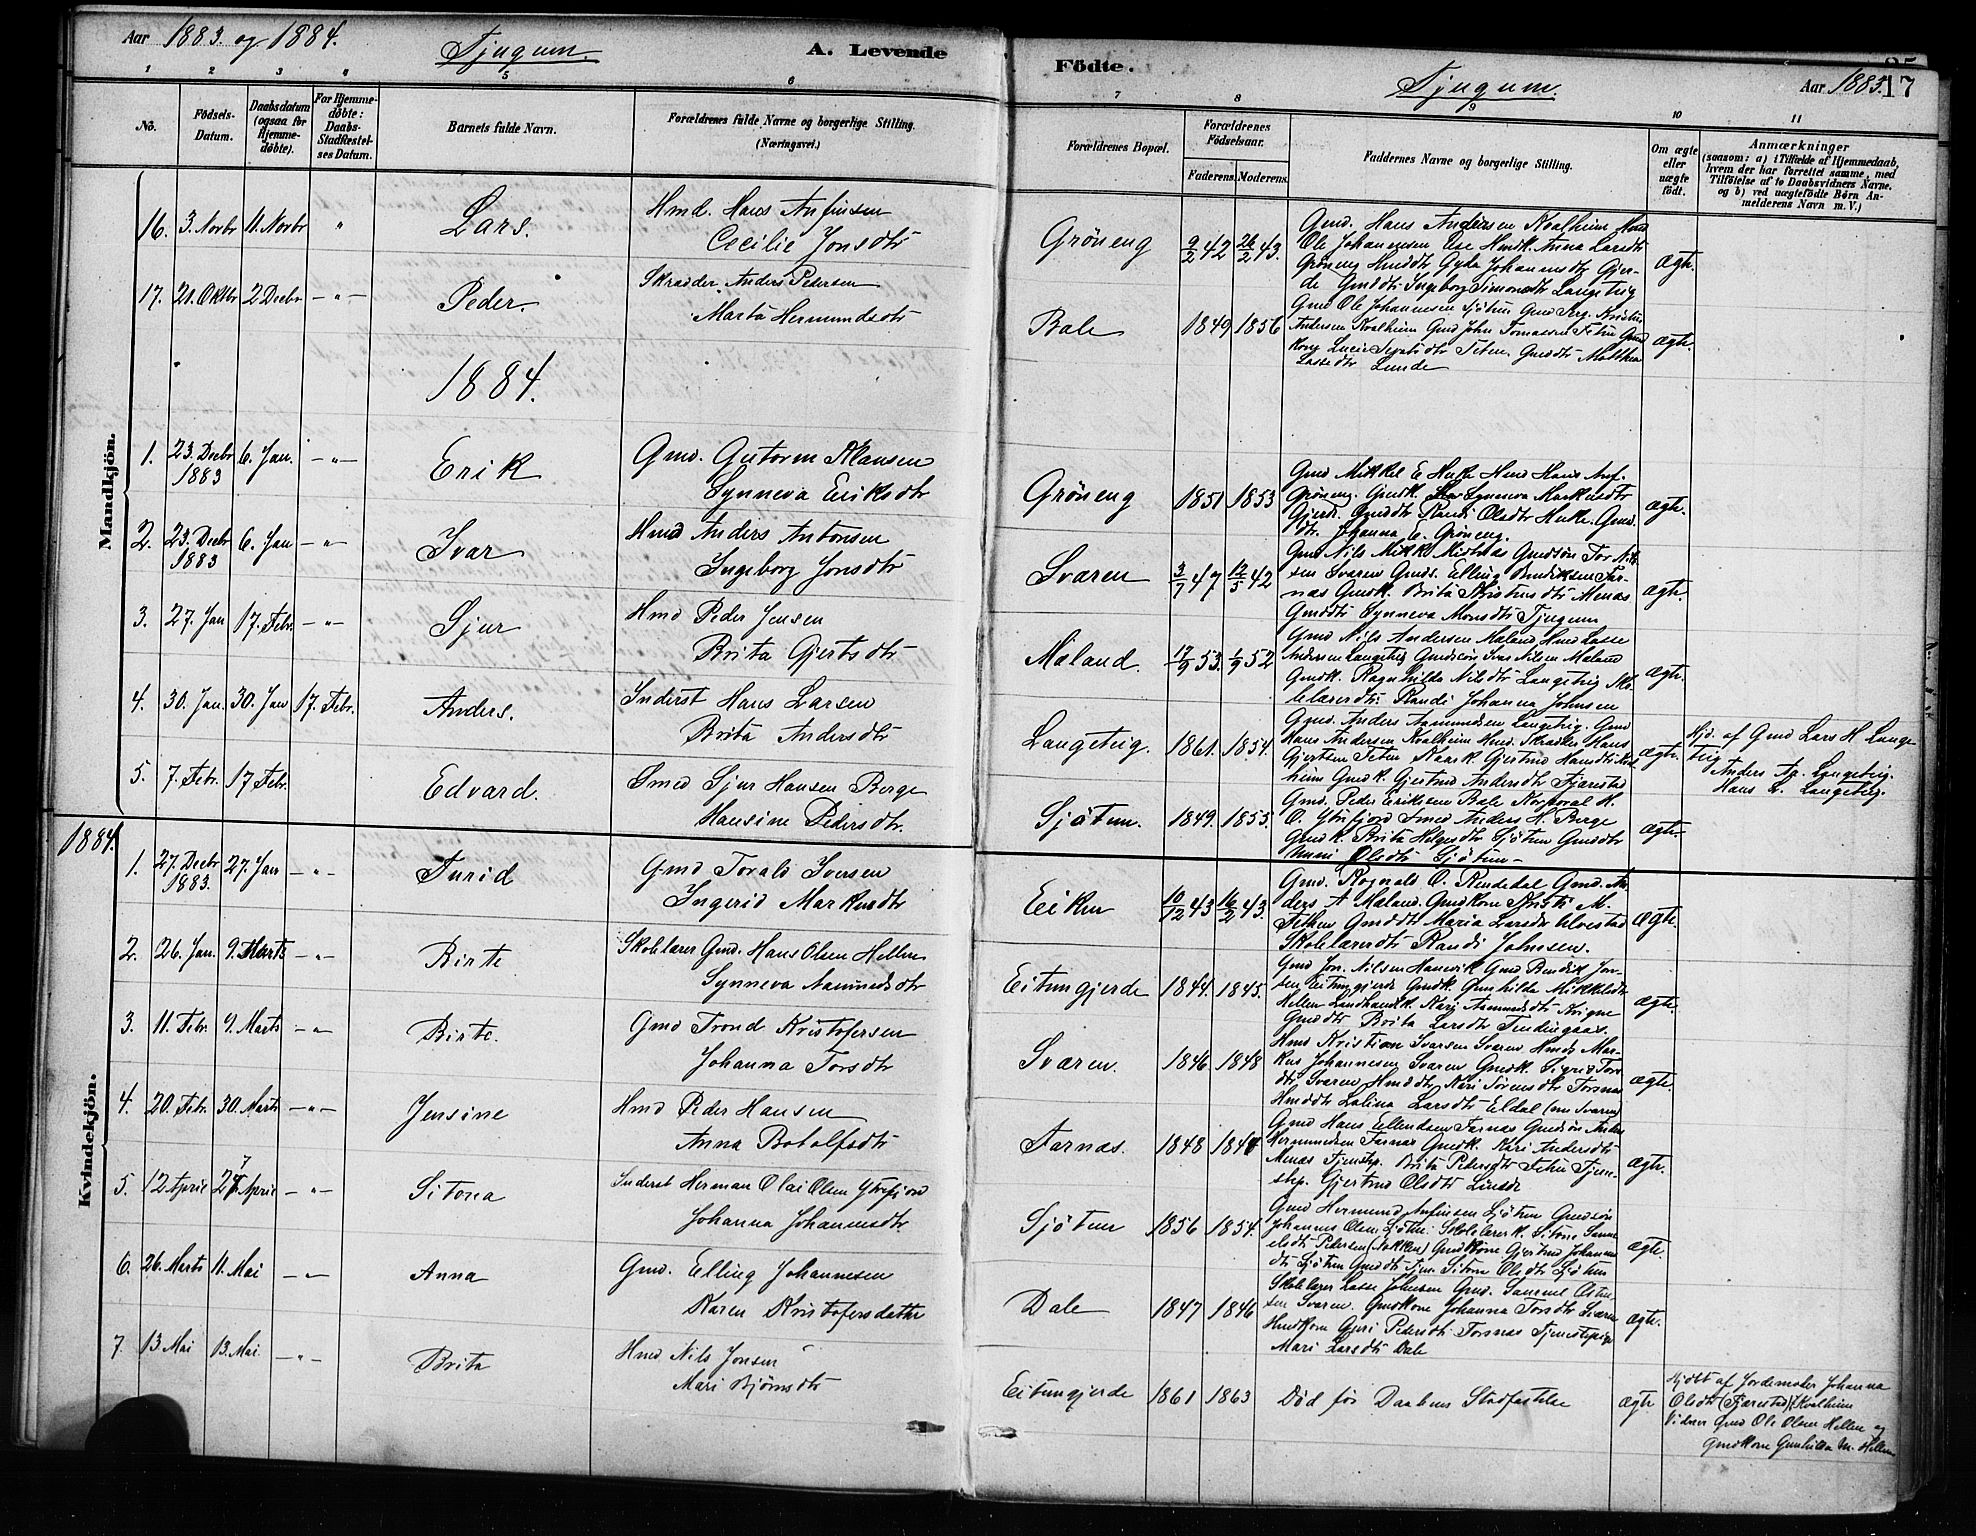 Aar 1883 og 1884.
Tjugum.
A. Levende Fødte.
Tjugum.
Aar 1883.
17
1 2 3 4 5 6 7 8 9 10 11
No.
Fødsels-Datum.
Daabsdatum (ogsaa for Hjemme-døbte).
For Hjemme-døbte: Daabs-Stadfæstel-ses Datum.
Barnets fulde Navn.
Forældrenes fulde Navne og borgerlige Stilling. (Næringsvei.)
Forældrenes Bopæl.
Forældrenes Fødselsaar.
Faderens. Moderens.
Faddernes Navne og borgerlige Stilling.
Om ægte eller uægte født.
Anmærkninger
(saasom: a) i Tilfælde af Hjemmedaab, hvem der har forrettet samme, med Tilføielse af to Daabsvidners Navne, og b) ved uægtefødte Børn An-melderens Navn m. V.)
Mandkjön.
16. 3. Novbr 11. Novbr " Lars.
Hmd. Hans Anfinsen
Cecilie Jonsdtr
Grøneng 9/2 42 26/2 43.
Gmd. Hans Andersen Kvalheim Hmd
Ole Johannesen Ese Hmdk. Anna Larsdtr
Grøneng Hmddtr Gyda Johannesdtr Gjer-
de Gmddtr Ingeborg Simonsdtr Langeteig
Ægte.
17. 21. Oktbr 2 Decbr - " - Peder.
Skrædder Anders Pedersen
Marta Hermundsdtr
Bale 1849 1856
Gmd Ole Johannesen Sjøtun
Andersen Kvalheim Gmd John Tomassen Fetin
Lassedtr Lunde
Ægte.
1884.
1. 23. Decbr 1883 6. Jan. - " - Erik
Gmd. Gutorm Klausen
Synneva Eriksdtr
Grøneng 1851 1853
Gmd Mikkel E Huke Hmd Hans Anf.
Grøneng. Gmdk. Synneva Markusdtr
Gjerd. Gmddtr Randi Olsdtr Huke. Gmd.
dtr. Johanna E. Grøneng.
Ægte.
2. 23. Decbr 1883 6. Jan - " - Ivar
Hmd Anders Antonsen
Ingeborg Jonsdtr
Sværen 3/7 47 12/5 42
Gmd Nils Mikk. Menæs Gmdsøn Tor Nil-
sen Sværen Gmds. Elling Bendiksen Far-
næs Gmdk. Brita Kristensdtr Menæs
Gmddtr Synneva Monsdtr Tjugum
Ægte.
3. 27. Jan 17. Febr. - " - Sjur
Hmd Peder Jensen
Brita Gjertsdtr
Mæland. 17/9 53. 1/9 52
Gmd Nils Andersen Mæland Hmd Lasse
Andersen Langeteig Gmdssøn Nilsen Mæland
Gmdk. Ragnhilda Nilsdtr Langeteig Sko-
lelærerdtr. Randi Johanna Johnsen
Ægte.
4. 30. Jan. 30. Jan 17. Febr. Anders.
Inderst Hans Larsen
Brita Andersdtr
Langeteig. 1861. 1854.
Gmd. Anders Aamundsen Langeteig. Gmd
Hans Andersen Kvalheim Hmd. Skrædder Hans
heim Gmdk. Gjertrud Andersdtr Fjærestad
Ægte.
Hjd. af Gmd Lars H Lange
teig
Anders Aa. Langeteig.
Hans L. Langeteig.
5. 7. Febr. 17 Febr. Edvard.
Smed Sjur Hansen Berge
Hansine Pedersdtr.
Sjøtun. 1849. 1853.
Gmd. Peder Eriksen Bale Korporal K.
O. Ytrefjord Smed Anders H. Berge
Gmdk. Brita Helgesdtr Sjøtun Gmddtr
Olsdtr Sjøtun
Ægte.
1884.
Kvindekjön.
1. 27. Decbr 1883. 27. Jan - " - Turid
Gmd Torald Iversen
Ingerid Markusdtr
Eiken 10/12 43 16/2 43.
Gmd. Rognald O. Rendedal Gmd. An-
ders A Mæland. Gmdkone Kristi M.
Fetten Gmddtr Maria Larsdtr Ulvestad
Skolelærerdtr Randi Johnsen.
Ægte.
2. 26. Jan. 9. Marts - " - Birte
Skolelærer Gmd. Hans Olsen Hellen
Synneva Aamundsdtr
Eitungjerde 1844. 1845.
Gmd Jon Nilsen Hanevik Gmd Bendik Jon-
sen Eitungjerde Gmdk. Gunhilda Mikkelsdtr
Hellen Landhandk. Kari Aamundsdtr
Gmddtr Brita Larsdtr
Ægte.
3. 11. Febr. 9. Marts - " - Birte.
Gmd Trond Kristofersen
Johanna Torsdtr
Sværen. 1846 1848
Hmd Kristian Ivarsen Sværen Hmds Mar-
kus Johannesen Sværen Gmdk. Sigrid Tors
dtr Sværen Hmddtr Kari Sørensdtr Torsnæs
Hmddtr Larsdtr Eldal (nu Sværen)
Ægte.
4. 20. Febr. 30. Marts - " - Jensine
Hmd Peder Hansen
Anna Botolfsdtr
Farnæs. 1848 1844
Gmd Hans Ellendsen Farnæs Gmdsøn
Hermundsen Farnæs Gmdk. Kari Andersdtr
Menæs Tjenstp. Brita Pedersdtr Fetin Tjen-
stp. Gjertrud Olsdtr Linde
Ægte.
5. 12 April 27 April - " - Sitona
Inderst Herman Olai Olsen Ytrefjord
Johanna Johannesdtr
Sjøtun 1856 1854.
Gmd Hermund Anfinsen Sjøtun Gmdsøn
Johannes Olsen Sjøtun Skolelærerk. Sitone Samu-
elsdtr Pedersen (Nokken) Gmdkone Gjertrud Johannes
dtr Sjøtun Gmddtr Sitona Olsdtr Sjøtun
Ægte.
6. 26. Marts 11. Mai - " - Anna
Gmd. Elling Johannesen
Karen Kristofersdatter
Dale 1847 1846
Skolelærer Lasse Johnsen Gmd. Samuel
sen Sværen. Gmdkone Johanna Torsdtr Sværen
Hmdkone Guri Pedersdtr Torsnæs Tjenestepige
Mari Larsdtr Dale
Ægte.
7. 13. Mai 13. Mai. - " - Brita
Hmd Nils Jonsen
Mari Bjørnsdtr
Eitungjerde 1861 1863
Død før Daabens Stadfæstelse
Ægte
Hjdbt af Jordemoder Johanna
Olsdtr (Fjærestad) Kvalheim
Vidner Gmd Ole Olsen Hellen og
Gmdkone Gunhilda M. Hellen